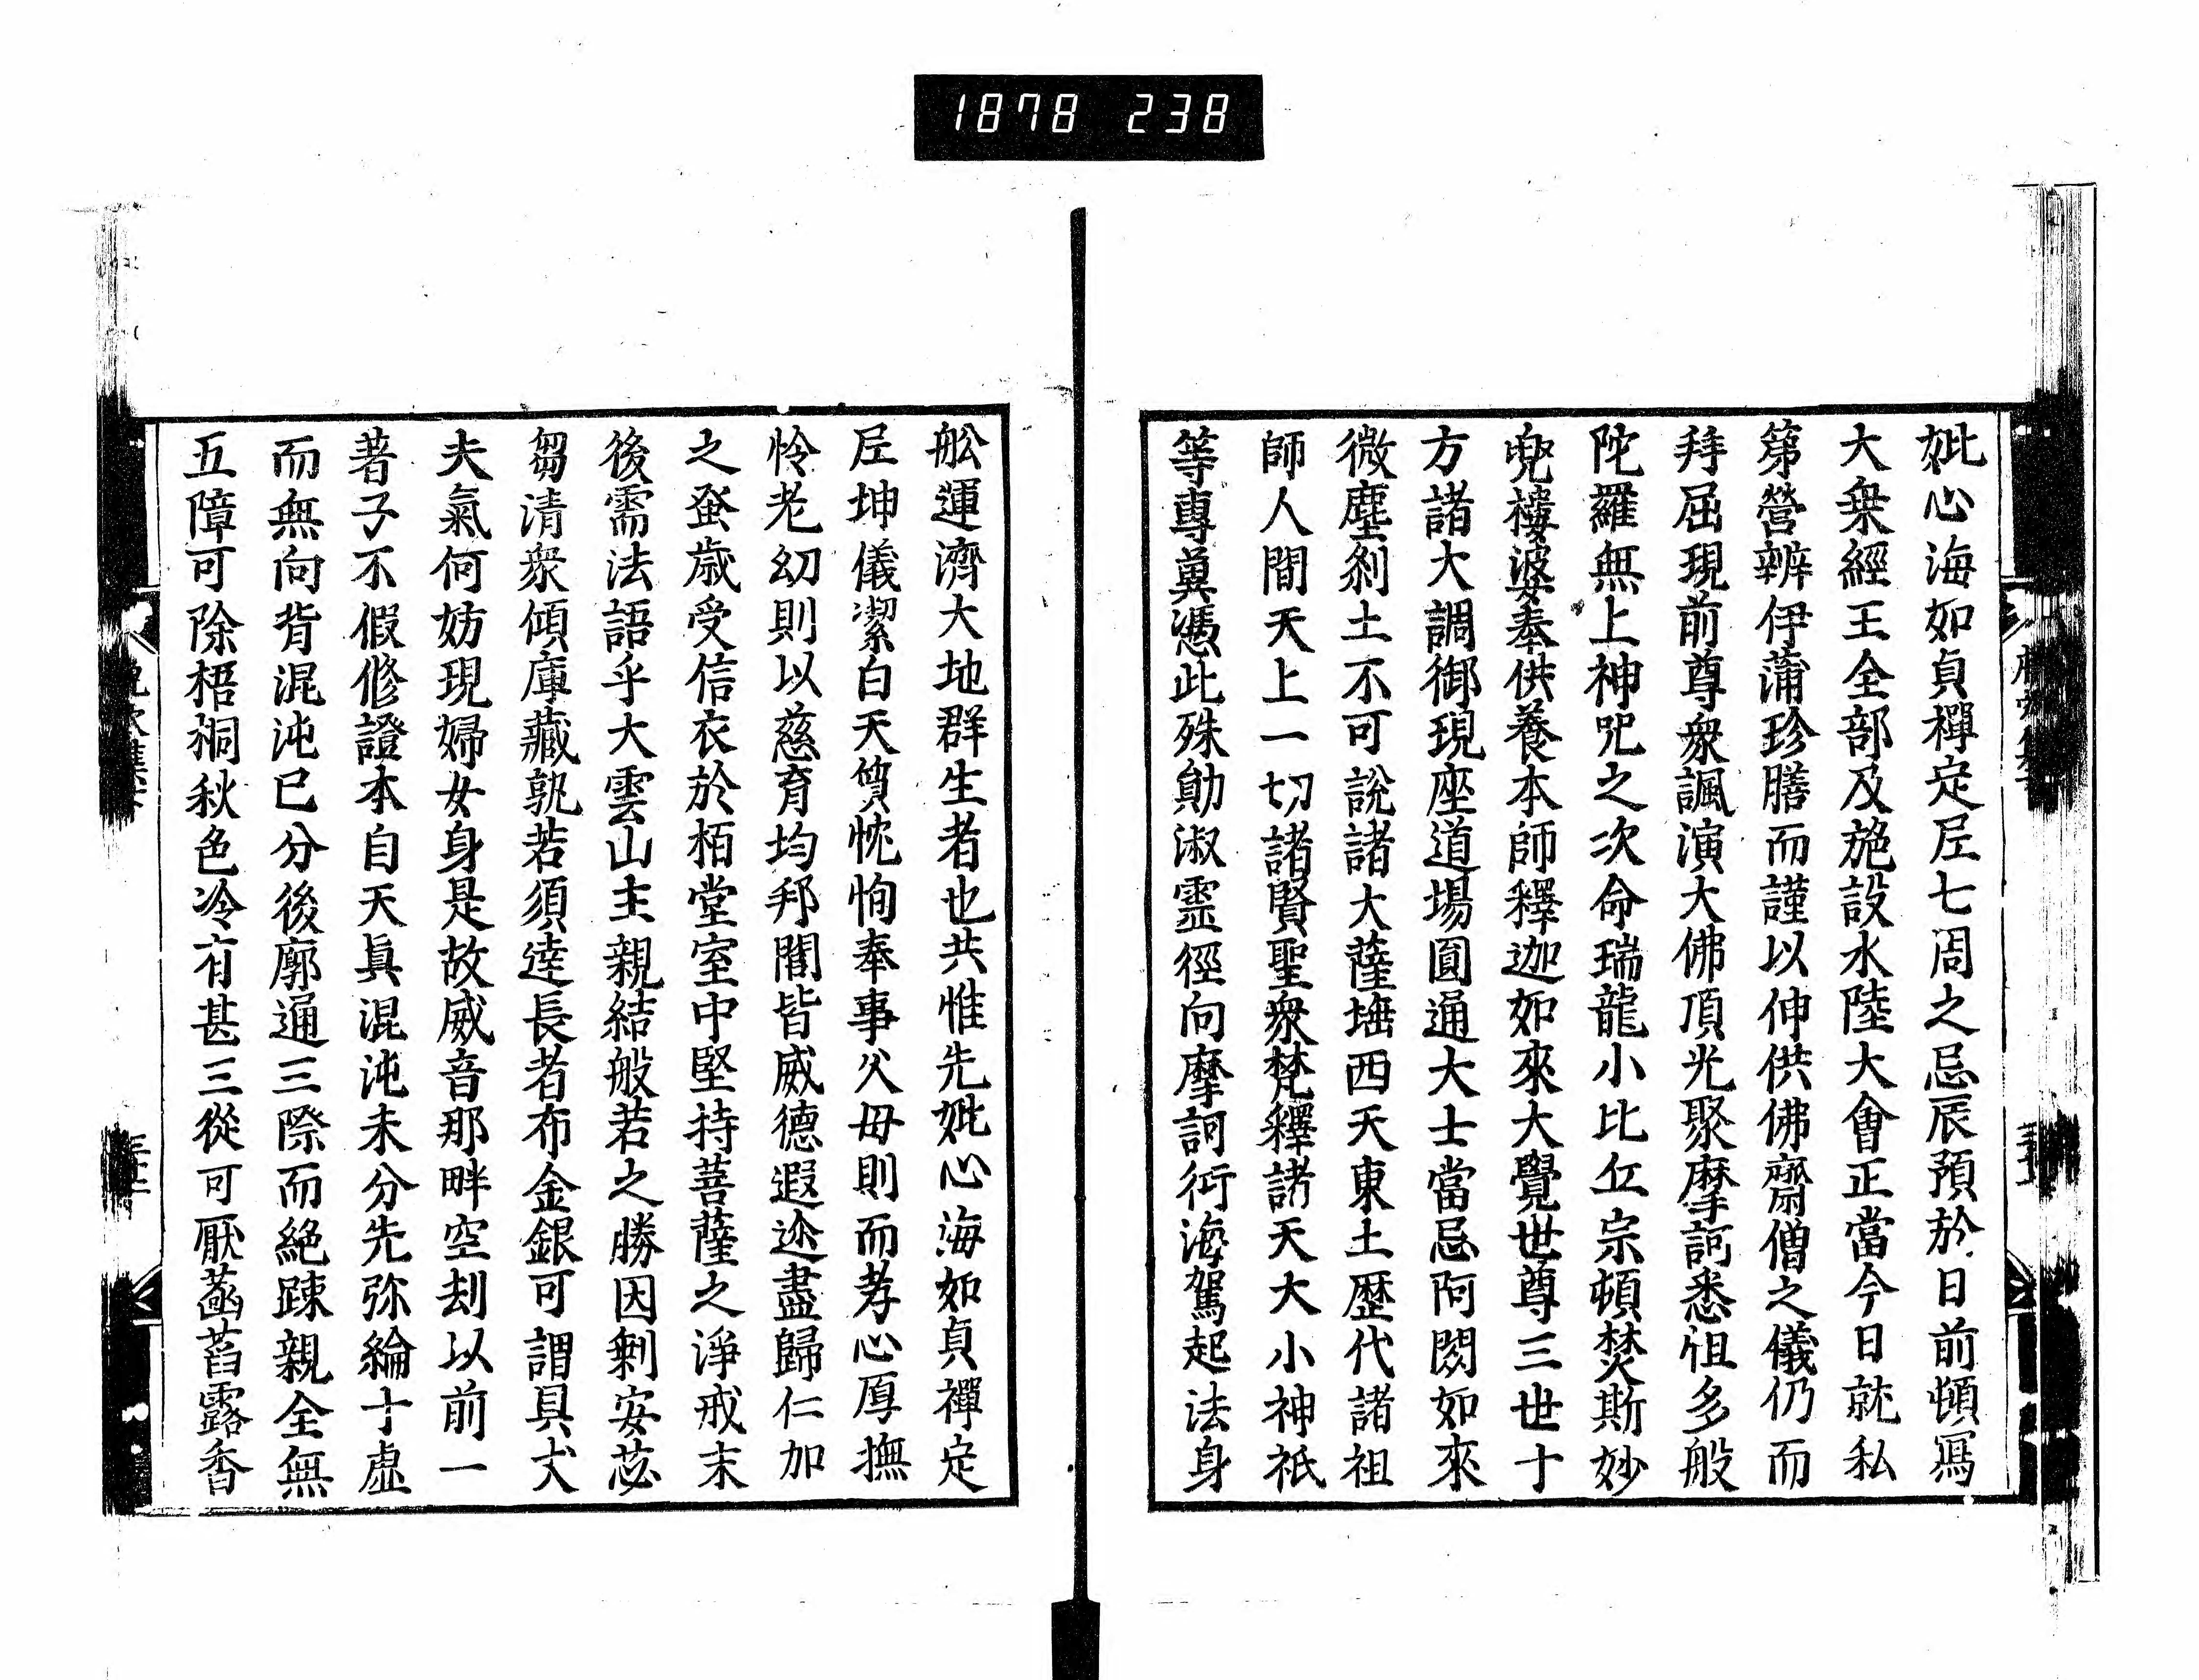 1878 238
妣心海如貞禪定尼七周之忌辰預於日前頓寫
大衆經王全部及施設水陸大會正當今日就私
第營辨伊蒲珍膳而謹以伸供佛齋僧之儀仍而
拜屈現前尊衆諷演大佛頂光聚摩訶悉怛多般
陀羅無上神呪之次命瑞龍小比丘宗頓焚斯妙
兜樓婆奉供養本師釋迦如來大覺世尊三世十
方諸大調御現座道場圓通大士當忌阿閦如來
微塵刹土不可說諸大薩埵西天東土歷代諸祖
師人間天上一切諸賢聖衆梵釋諸天大小神祇
等專冀憑此殊勛淑靈徑向摩訶衍海駕起法身
舩運濟大地群生者也共惟先妣心海如貞禪定
尼坤儀潔白天質忱恂奉事父母則而孝心厚撫
怜老幼則以慈育均邦閤皆威德遐迩盡歸仁加
之蚤歲受信衣於栢堂室中堅持菩薩之淨戒末
後需法語乎大雲山主親結般若之勝因剩安苾
芻清衆傾庫藏孰若須達長者布金銀可謂具丈
夫氣何妨現婦女身是故威音那畔空刧以前一
著子不假修證本自天眞混沌未分先弥綸十虛
而無向背混沌已分後廓通三際而絕踈親全無
五障可除梧桐秋色冷有甚三從可厭菡萏露香